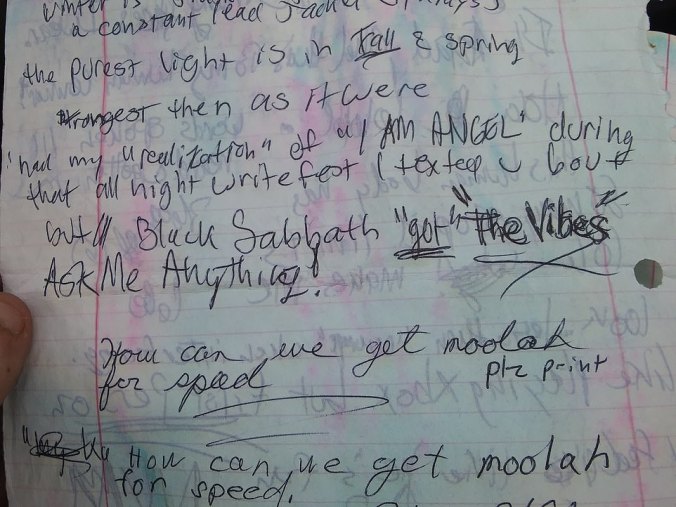 winter is
a constant lead Jacket
the purest light is in Fall & spring
strongest then as it were
'had my "realization" of "I AM ANGEL" during
that all night writefest I texted u bout
but Black Sabbath "got" "the Vibes"
Ask Me Anything!
How can we get moolah
for speed
plz print
How can we get moolah
for speed.